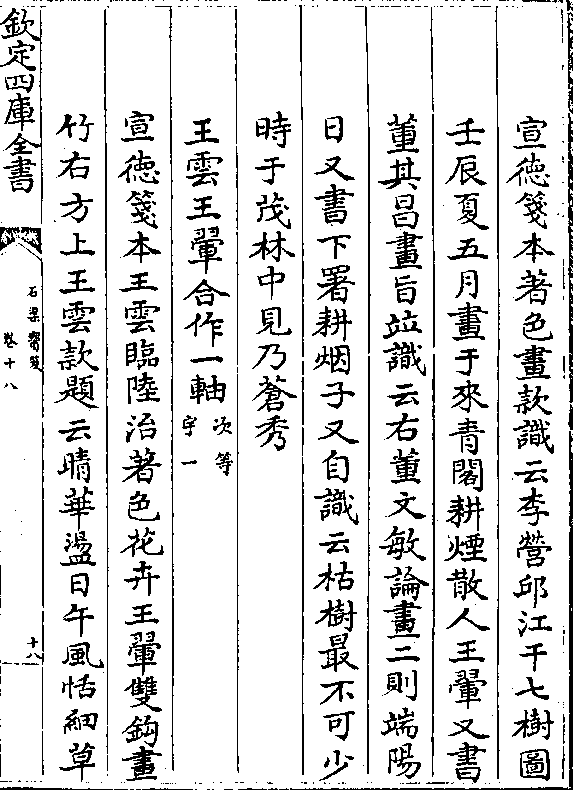 宣德箋本著色畫款識云李營邱江干七樹圖
壬辰夏五月畫于來青閣耕煙散人王翬又書
董其昌畫旨竝識云右董文敏論畫二則端陽
日又書下署耕烟子又自識云枯樹最不可少
時于茂林中見乃蒼秀
王雲王翬合作一軸次等宇一
宣德箋本王雲臨陸治著色花卉王翬雙鈎畫
竹右方上王雲款題云晴華盪日午風恬細草
欽定四庫全書
石渠寶笈
卷十八
十八